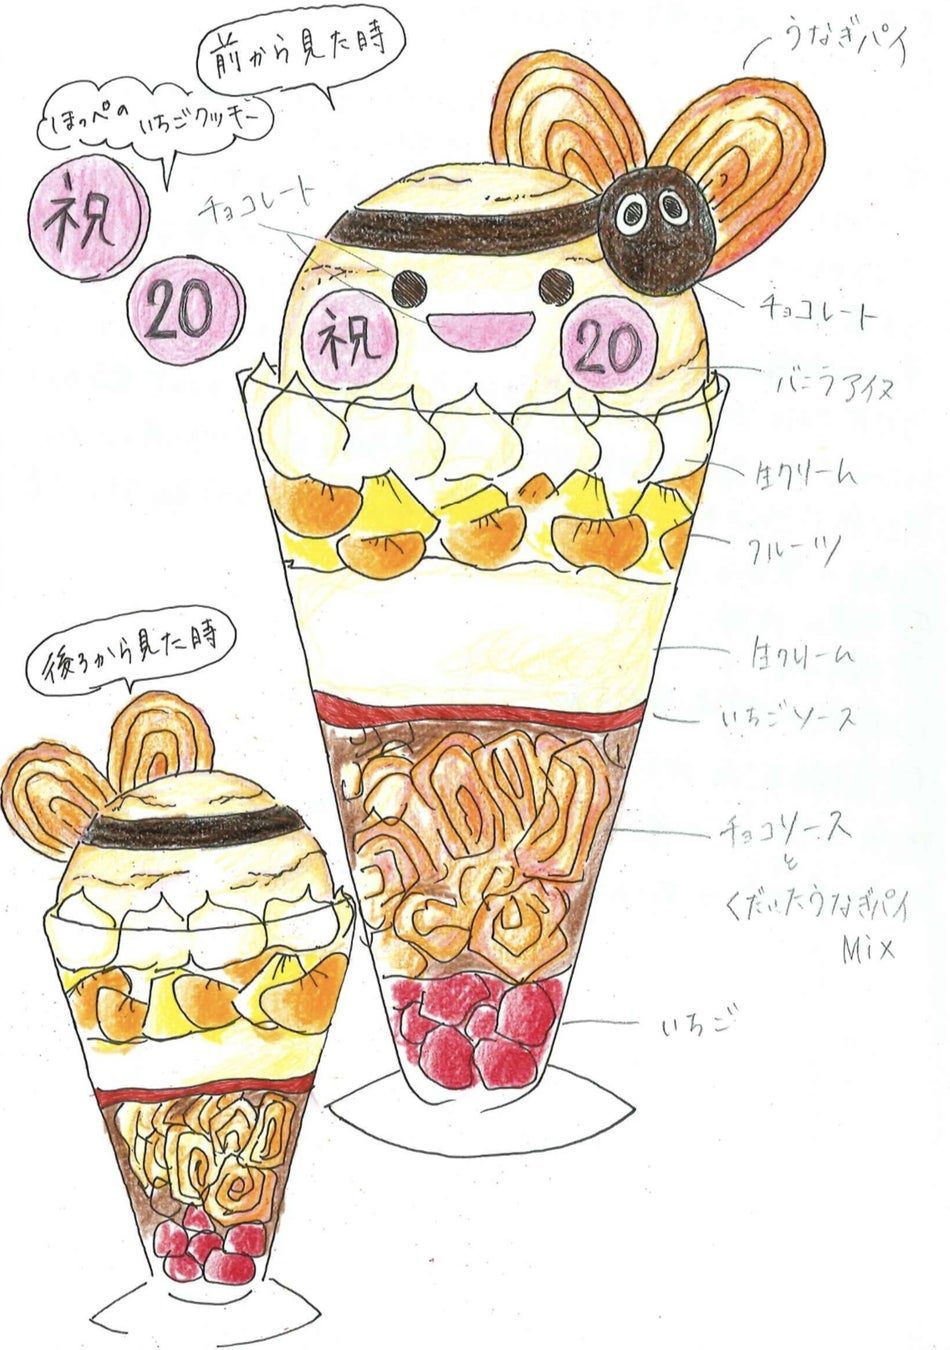 前から見た時
うなぎパイ
ほっぺの いちごクッキー
祝
20
チョコレート
祝
20
チョコレート
バニラアイス
生クリーム
フルーツ
生クリーム
いちごソース
チョコソース
と
くだいたうなぎパイ
Mix
いちご
後ろから見た時